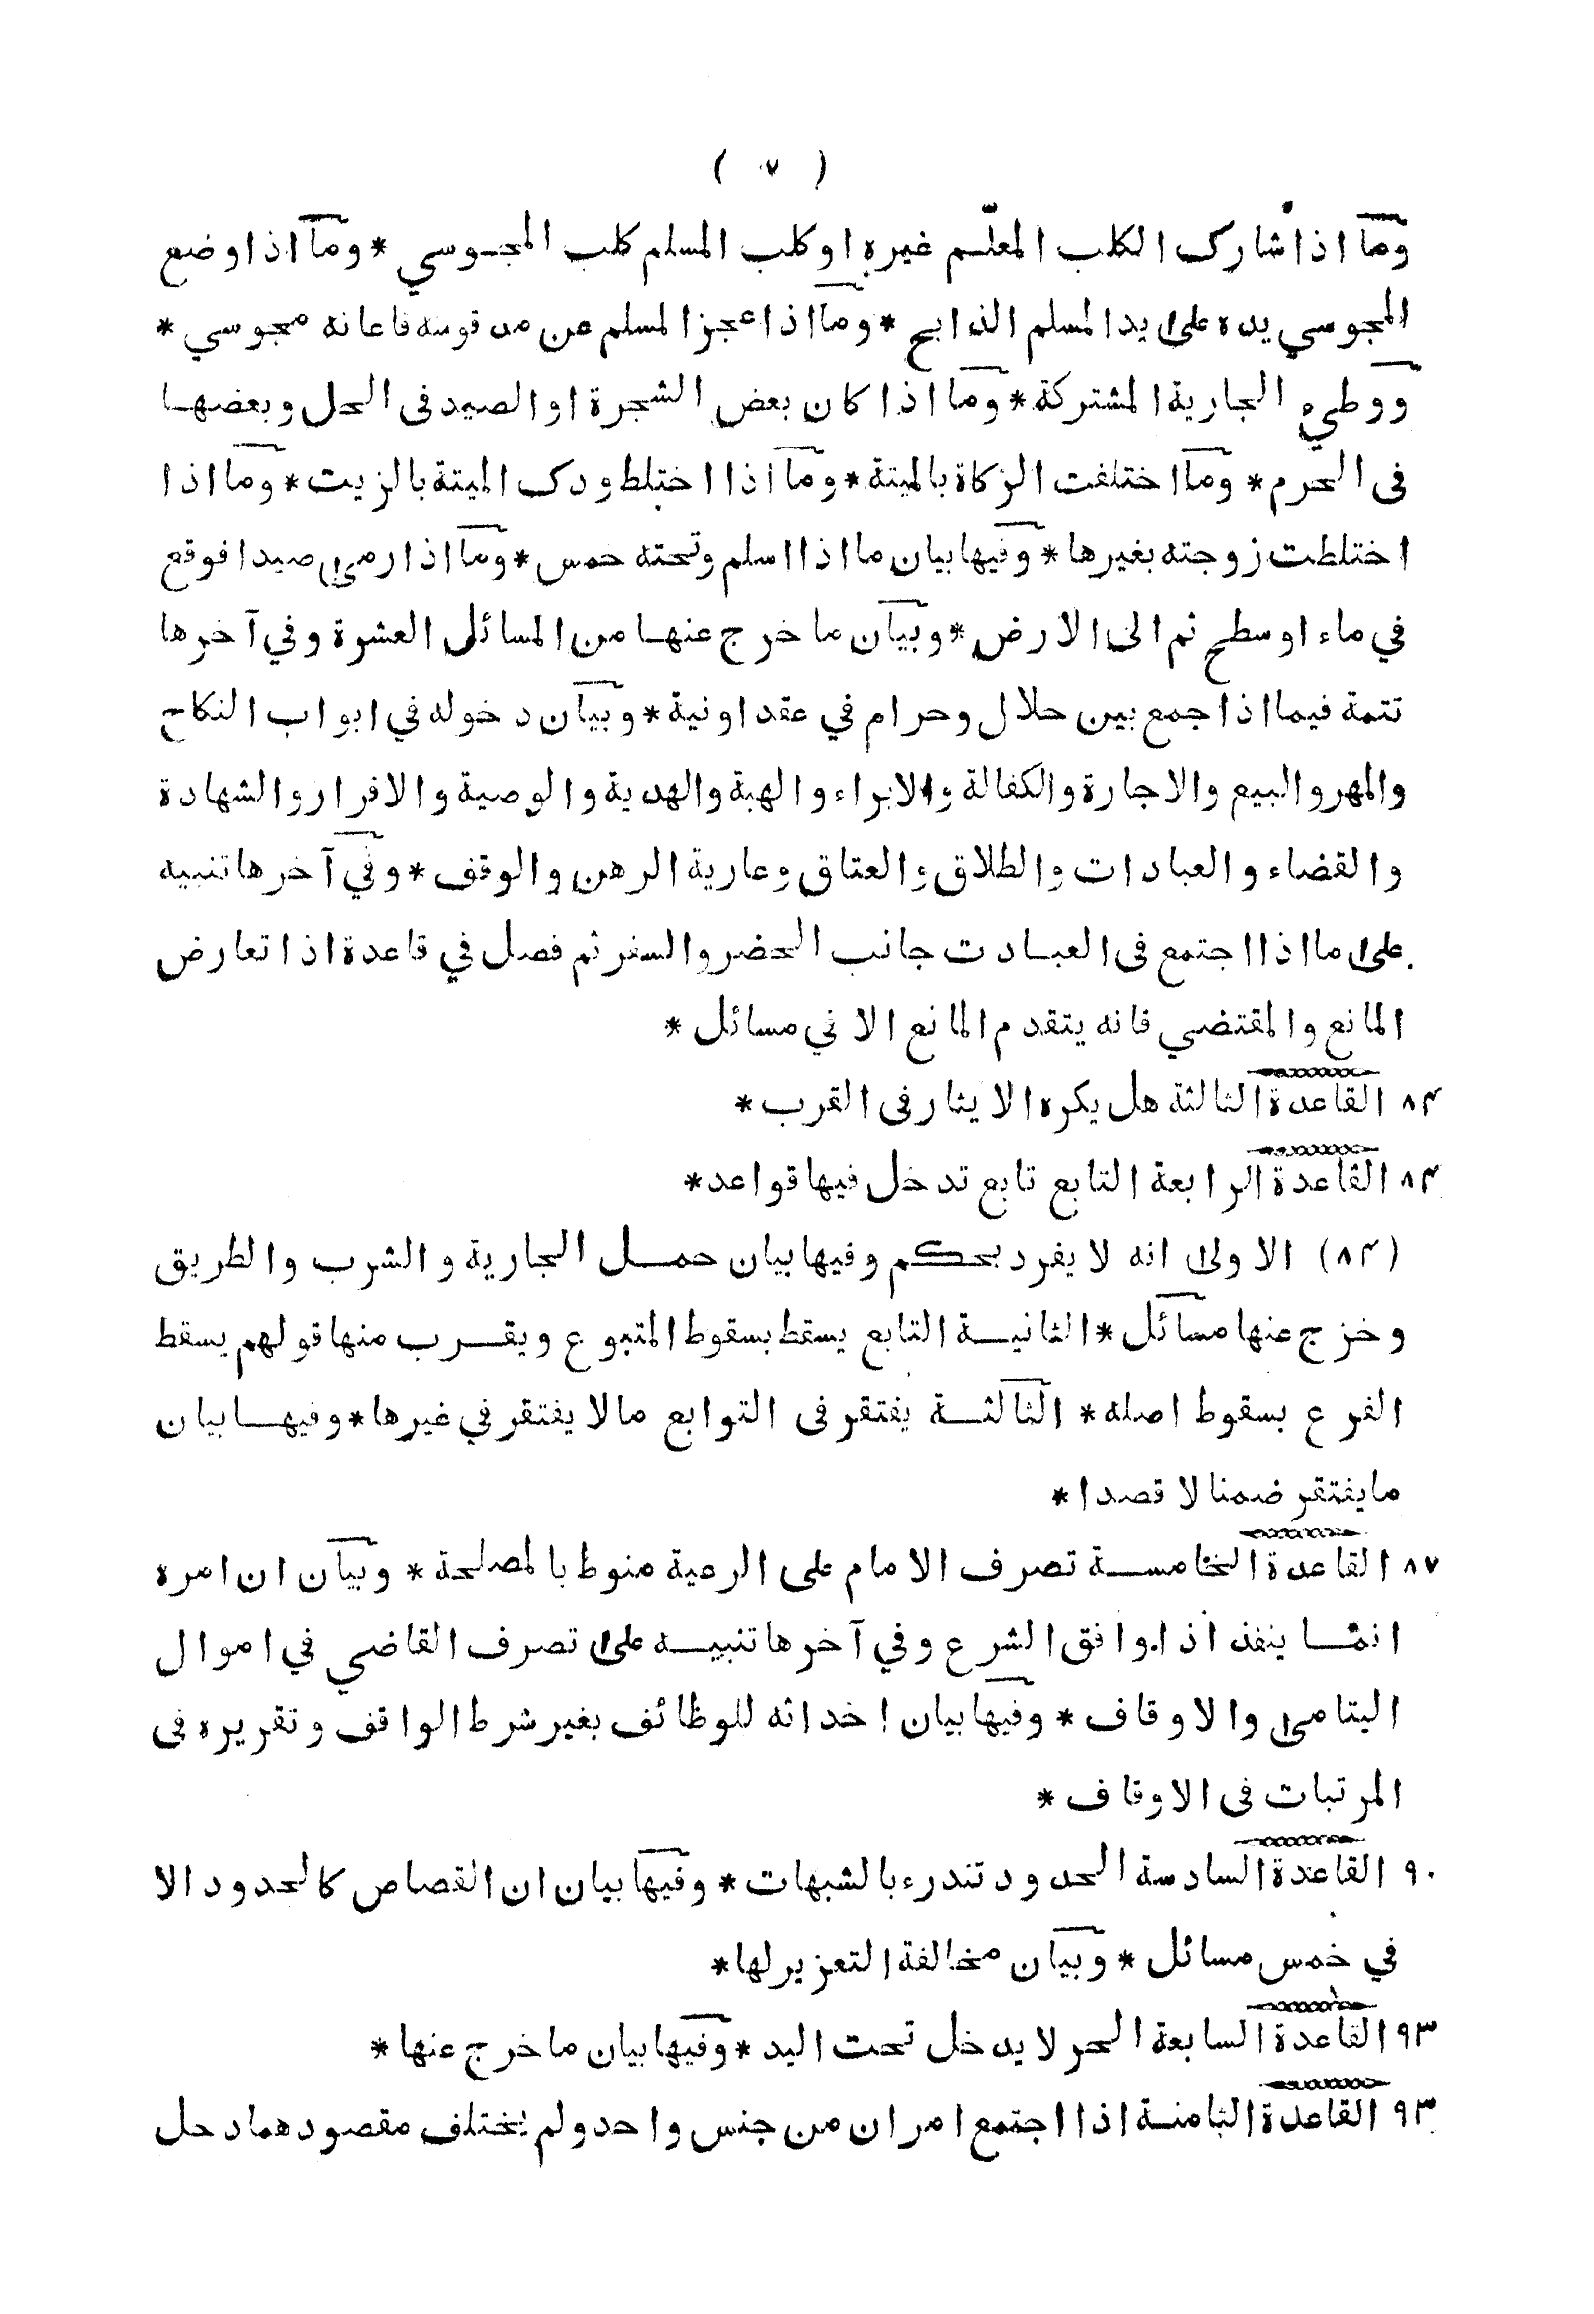 ( ٧ )
وما اذا شارك الكلب المعلّم غيره او كلب المسلم كلب المجوسي * وما اذا وضع
المجوسي يده على يد المسلم الذابح * وما اذا عجز المسلم عن مد قوسه فاعانه مجوسي *
ووطيء الجارية المشتركة * وما اذا كان بعض الشجرة او الصيد فى الحل وبعضها
فى الحرم * وما اختلفت الزكاة بالميتة * وما اذا اختلط ودك الميتة بالزيت * وما اذا
اختلطت زوجته بغيرها * وفيها بيان ما اذا اسلم وتحته خمس * وما اذا رمى صيدا فوقع
في ماء او سطح ثم الى الارض * وبيان ما خرج عنها من المسائل العشرة وفي آخرها
تتمة فيما اذا جمع بين حلال وحرام في عقد او نية * وبيان دخوله في ابواب النكاح
والمهر والبيع والاجارة والكفالة والابراء والهبة والهدية والوصية والاقرار والشهادة
والقضاء والعبادات والطلاق والعتاق وعارية الرهن والوقف * وفي آخرها تنبيه
على ما اذا اجتمع فى العبادت جانب الحضر والسفر ثم فصل في قاعدة اذا تعارض
المانع والمقتضي فانه يتقدم المانع الا في مسائل *
٨٣ القاعدة الثالثة هل يكره الايثار فى القرب *
٨٤ القاعدة الرابعة التابع تابع تدخل فيها قواعد *
(٨٤) الاولى انه لا يفرد بحكم وفيها بيان حمل الجارية والشرب والطريق
وخرج عنها مسائل * الثانية التابع يسقط بسقوط المتبوع ويقرب منها قولهم يسقط
الفرع بسقوط اصله * الثالثة يفتقر فى التوابع مالا يفتقر في غيرها * وفيها بيان
ما يفتقر ضمنا لا قصدا *
٨٧ القاعدة الخامسة تصرف الامام على الرعية منوط بالمصلحة * وبيان ان امره
انما ينفذ اذا وافق الشرع وفي آخرها تنبيه على تصرف القاضي في اموال
اليتامى والاوقاف * وفيها بيان احداثه للوظائف بغير شرط الواقف وتقريره فى
المرتبات فى الاوقاف *
٩٠ القاعدة السادسة الحدود تندرء بالشبهات * وفيها بيان ان القصاص كالحدود الا
في خمس مسائل * وبيان مخالفة التعزير لها *
٩٣ القاعدة السابعة الحر لا يدخل تحت اليد * وفيها بيان ما خرج عنها *
٩٣ القاعدة الثامنة اذا اجتمع امران من جنس واحد ولم يختلف مقصودهما دخل